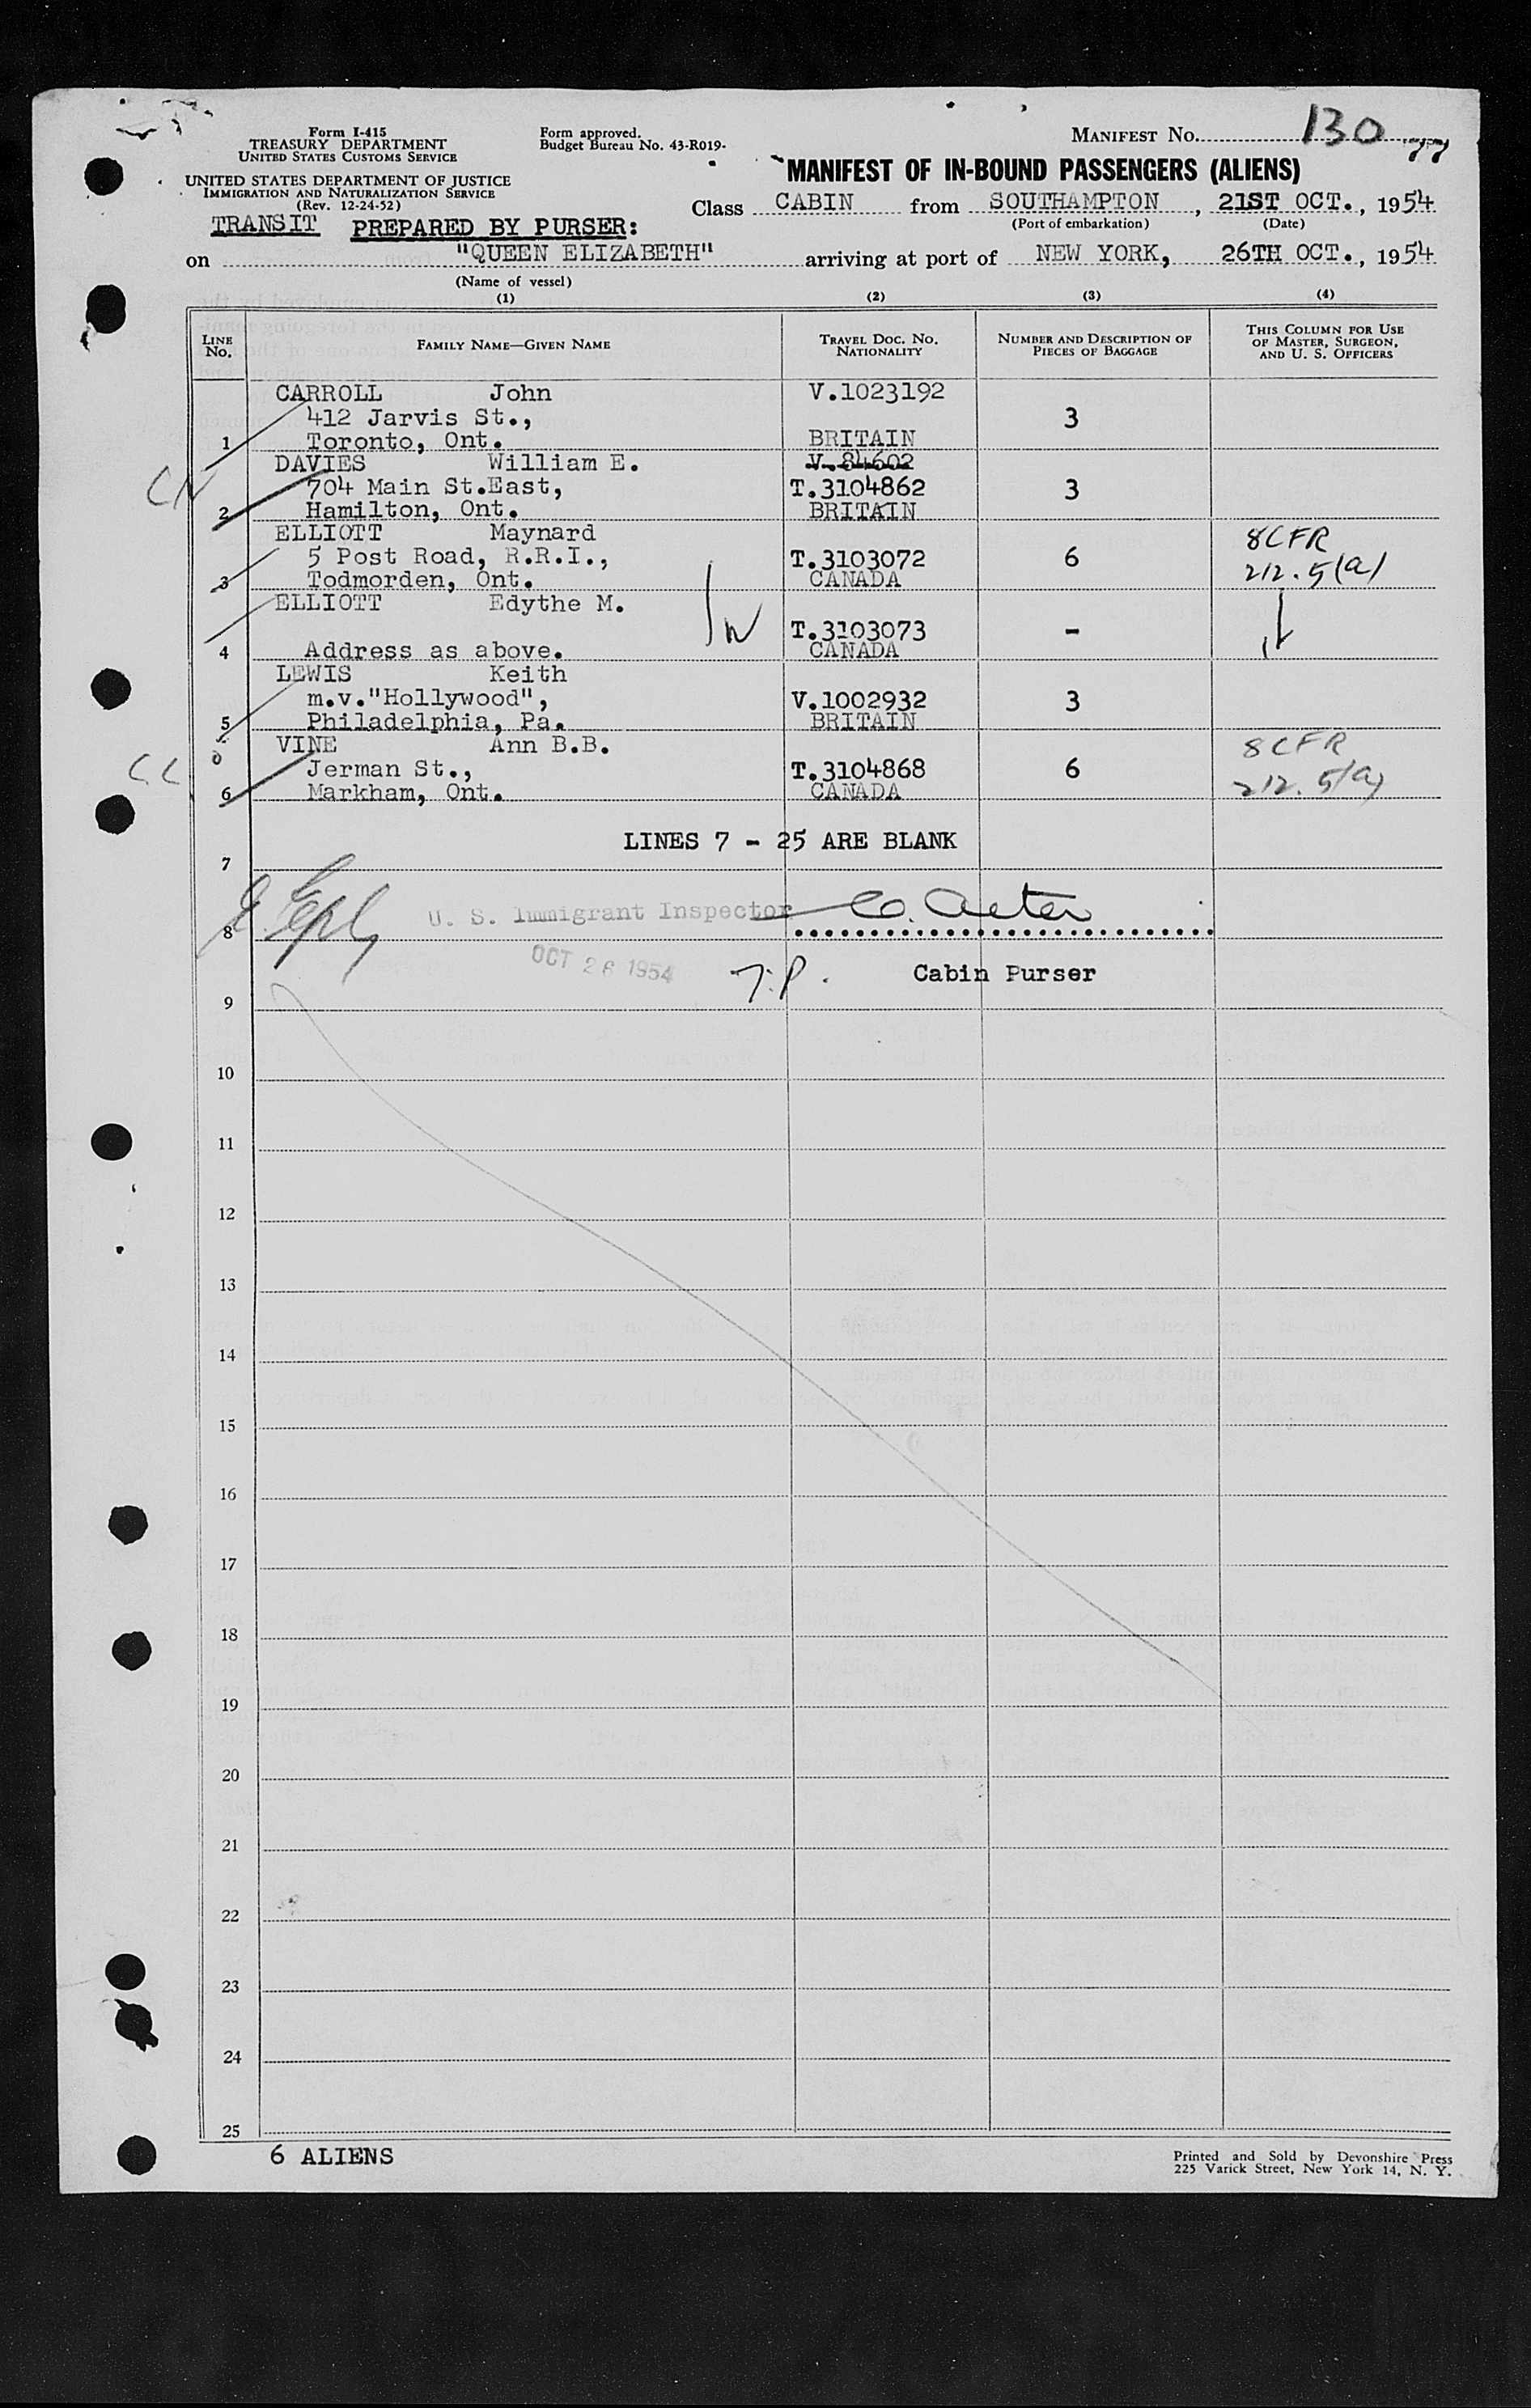 Form I-415
TREASURY DEPARTMENT
UNITED STATES CUSTOMS SERVICE
UNITED STATES DEPARTMENT OF JUSTICE
IMMIGRATION AND NATURALIZATION SERVICE
(Rev. 12-24-52)
Form approved.
Budget Bureau No. 43-R019-
MANIFEST No. 130
77
MANIFEST OF IN-BOUND PASSENGERS (ALIENS)
TRANSIT PREPARED BY PURSER:
Class CABIN from SOUTHAMPTON, 21ST OCT., 1954
(Port of embarkation) (Date)
on "QUEEN ELIZABETH" arriving at port of NEW YORK, 26TH OCT., 1954
(Name of vessel)
(1) (2) (3) (4)
LINE No. FAMILY NAME—GIVEN NAME TRAVEL DOC. NO. NATIONALITY NUMBER AND DESCRIPTION OF PIECES OF BAGGAGE THIS COLUMN FOR USE OF MASTER, SURGEON, AND U. S. OFFICERS
CARROLL John V.1023192
412 Jarvis St., 3
1 Toronto, Ont. BRITAIN
DAVIES William E. V.84602
CN 704 Main St.East, T.3104862 3
2 Hamilton, Ont. BRITAIN
ELLIOTT Maynard 8CFR
5 Post Road, R.R.I., T.3103072 6 212.5(a)
3 Todmorden, Ont. CANADA
ELLIOTT Edythe M.
T.3103073 -
4 Address as above. CANADA
LEWIS Keith
m.v."Hollywood", V.1002932 3
5 Philadelphia, Pa. BRITAIN
VINE Ann B.B. 8CFR
CC Jerman St., T.3104868 6 212.5(a)
6 Markham, Ont. CANADA
LINES 7 - 25 ARE BLANK
7
8 U. S. Immigrant Inspector
OCT 26 1954
Cabin Purser
9
10
11
12
13
14
15
16
17
18
19
20
21
22
23
24
25
6 ALIENS
Printed and Sold by Devonshire Press
225 Varick Street, New York 14, N. Y.